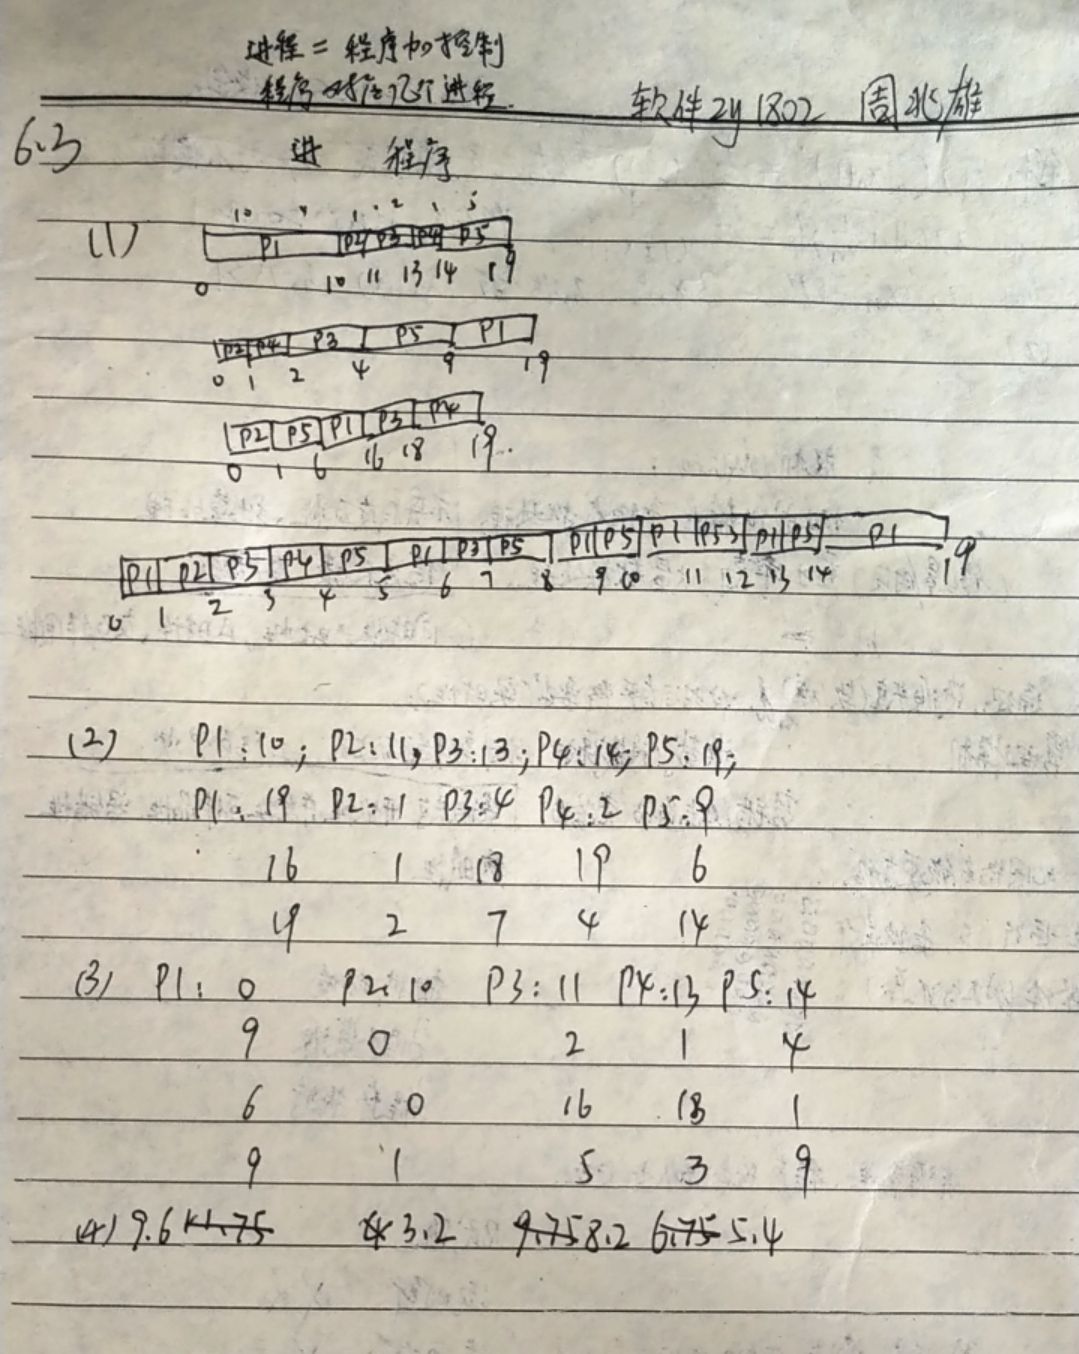 进程 = 程序加控制
程序对应几个进程.
软件zy1802 周兆雄
6.3
进 程序
10 1 2 1 5
(1) P1 P2 P3 P4 P5
0 10 11 13 14 19
P2 P4 P3 P5 P1
0 1 2 4 9 19
P2 P5 P1 P3 P4
0 1 6 16 18 19.
P1 P2 P3 P4 P5 P1 P3 P5 P1 P5 P1 P5 P1 P5 P1
0 1 2 3 4 5 6 7 8 9 10 11 12 13 14 19
(2) P1:10; P2:11, P3:13; P4:14; P5:19;
P1:19 P2:1 P3:4 P4:2 P5:9
16 1 18 19 6
19 2 7 4 14
(3) P1: 0 P2:10 P3:11 P4:13 P5:14
9 0 2 1 4
6 0 16 18 1
9 1 5 3 9
(4) 9.6 3.2 9.75 8.2 6.75 5.4